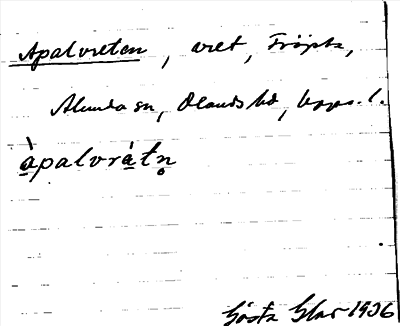 Apalvreten, vret, Fröpta,
Alunda sn, Olands hd, Upps. l.
àpalvràtn̥
Gösta Glas 1936